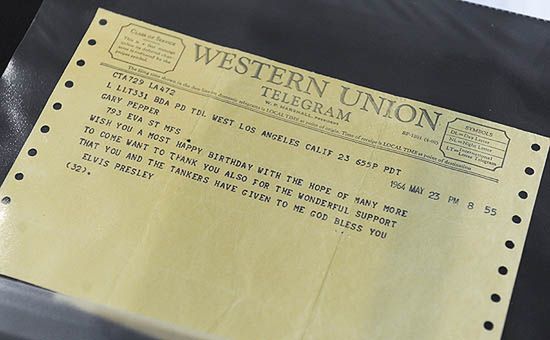 CLASS OF SERVICE
This is a fast message
unless its deferred char-
acter is indicated by the
proper symbol.
WESTERN UNION
TELEGRAM
W. P. MARSHALL, PRESIDENT
SF-1201 (4-60)
SYMBOLS
DL=Day Letter
NL=Night Letter
LT=International
Letter Telegram
The filing time shown in the date line on domestic telegrams is LOCAL TIME at point of origin. Time of receipt is LOCAL TIME at point of destination
CTA729 LA472
L LLT331 BDA PD TDL WEST LOS ANGELES CALIF 23 655P PDT
GARY PEPPER
1964 MAY 23 PM 8 55
793 EVA ST MFS
WISH YOU A MOST HAPPY BIRTHDAY WITH THE HOPE OF MANY MORE
TO COME WANT TO THANK YOU ALSO FOR THE WONDERFUL SUPPORT
THAT YOU AND THE TANKERS HAVE GIVEN TO ME GOD BLESS YOU
ELVIS PRESLEY
(32).